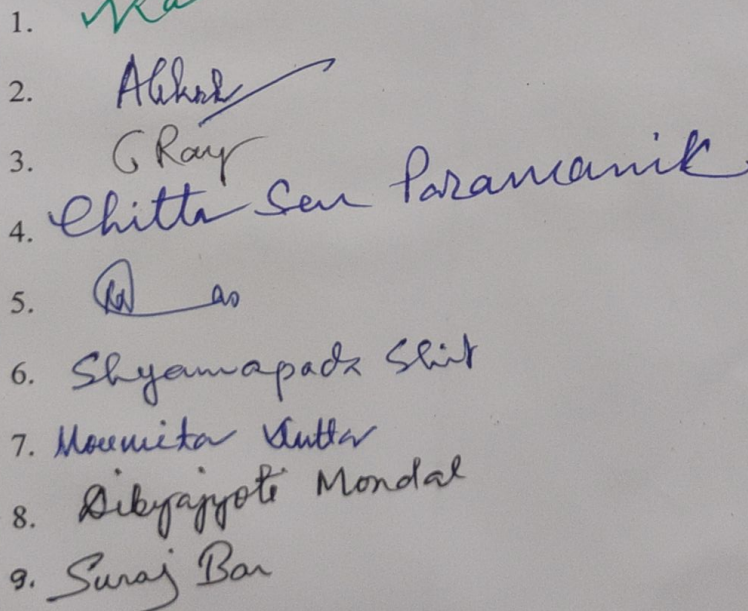 1.
2.
3. G Ray
4. Chitta Sen Paramanik
5.
6. Shyamapada Shit
7. Moumita Dutta
8. Dibyajyoti Mondal
9. Suraj Bar